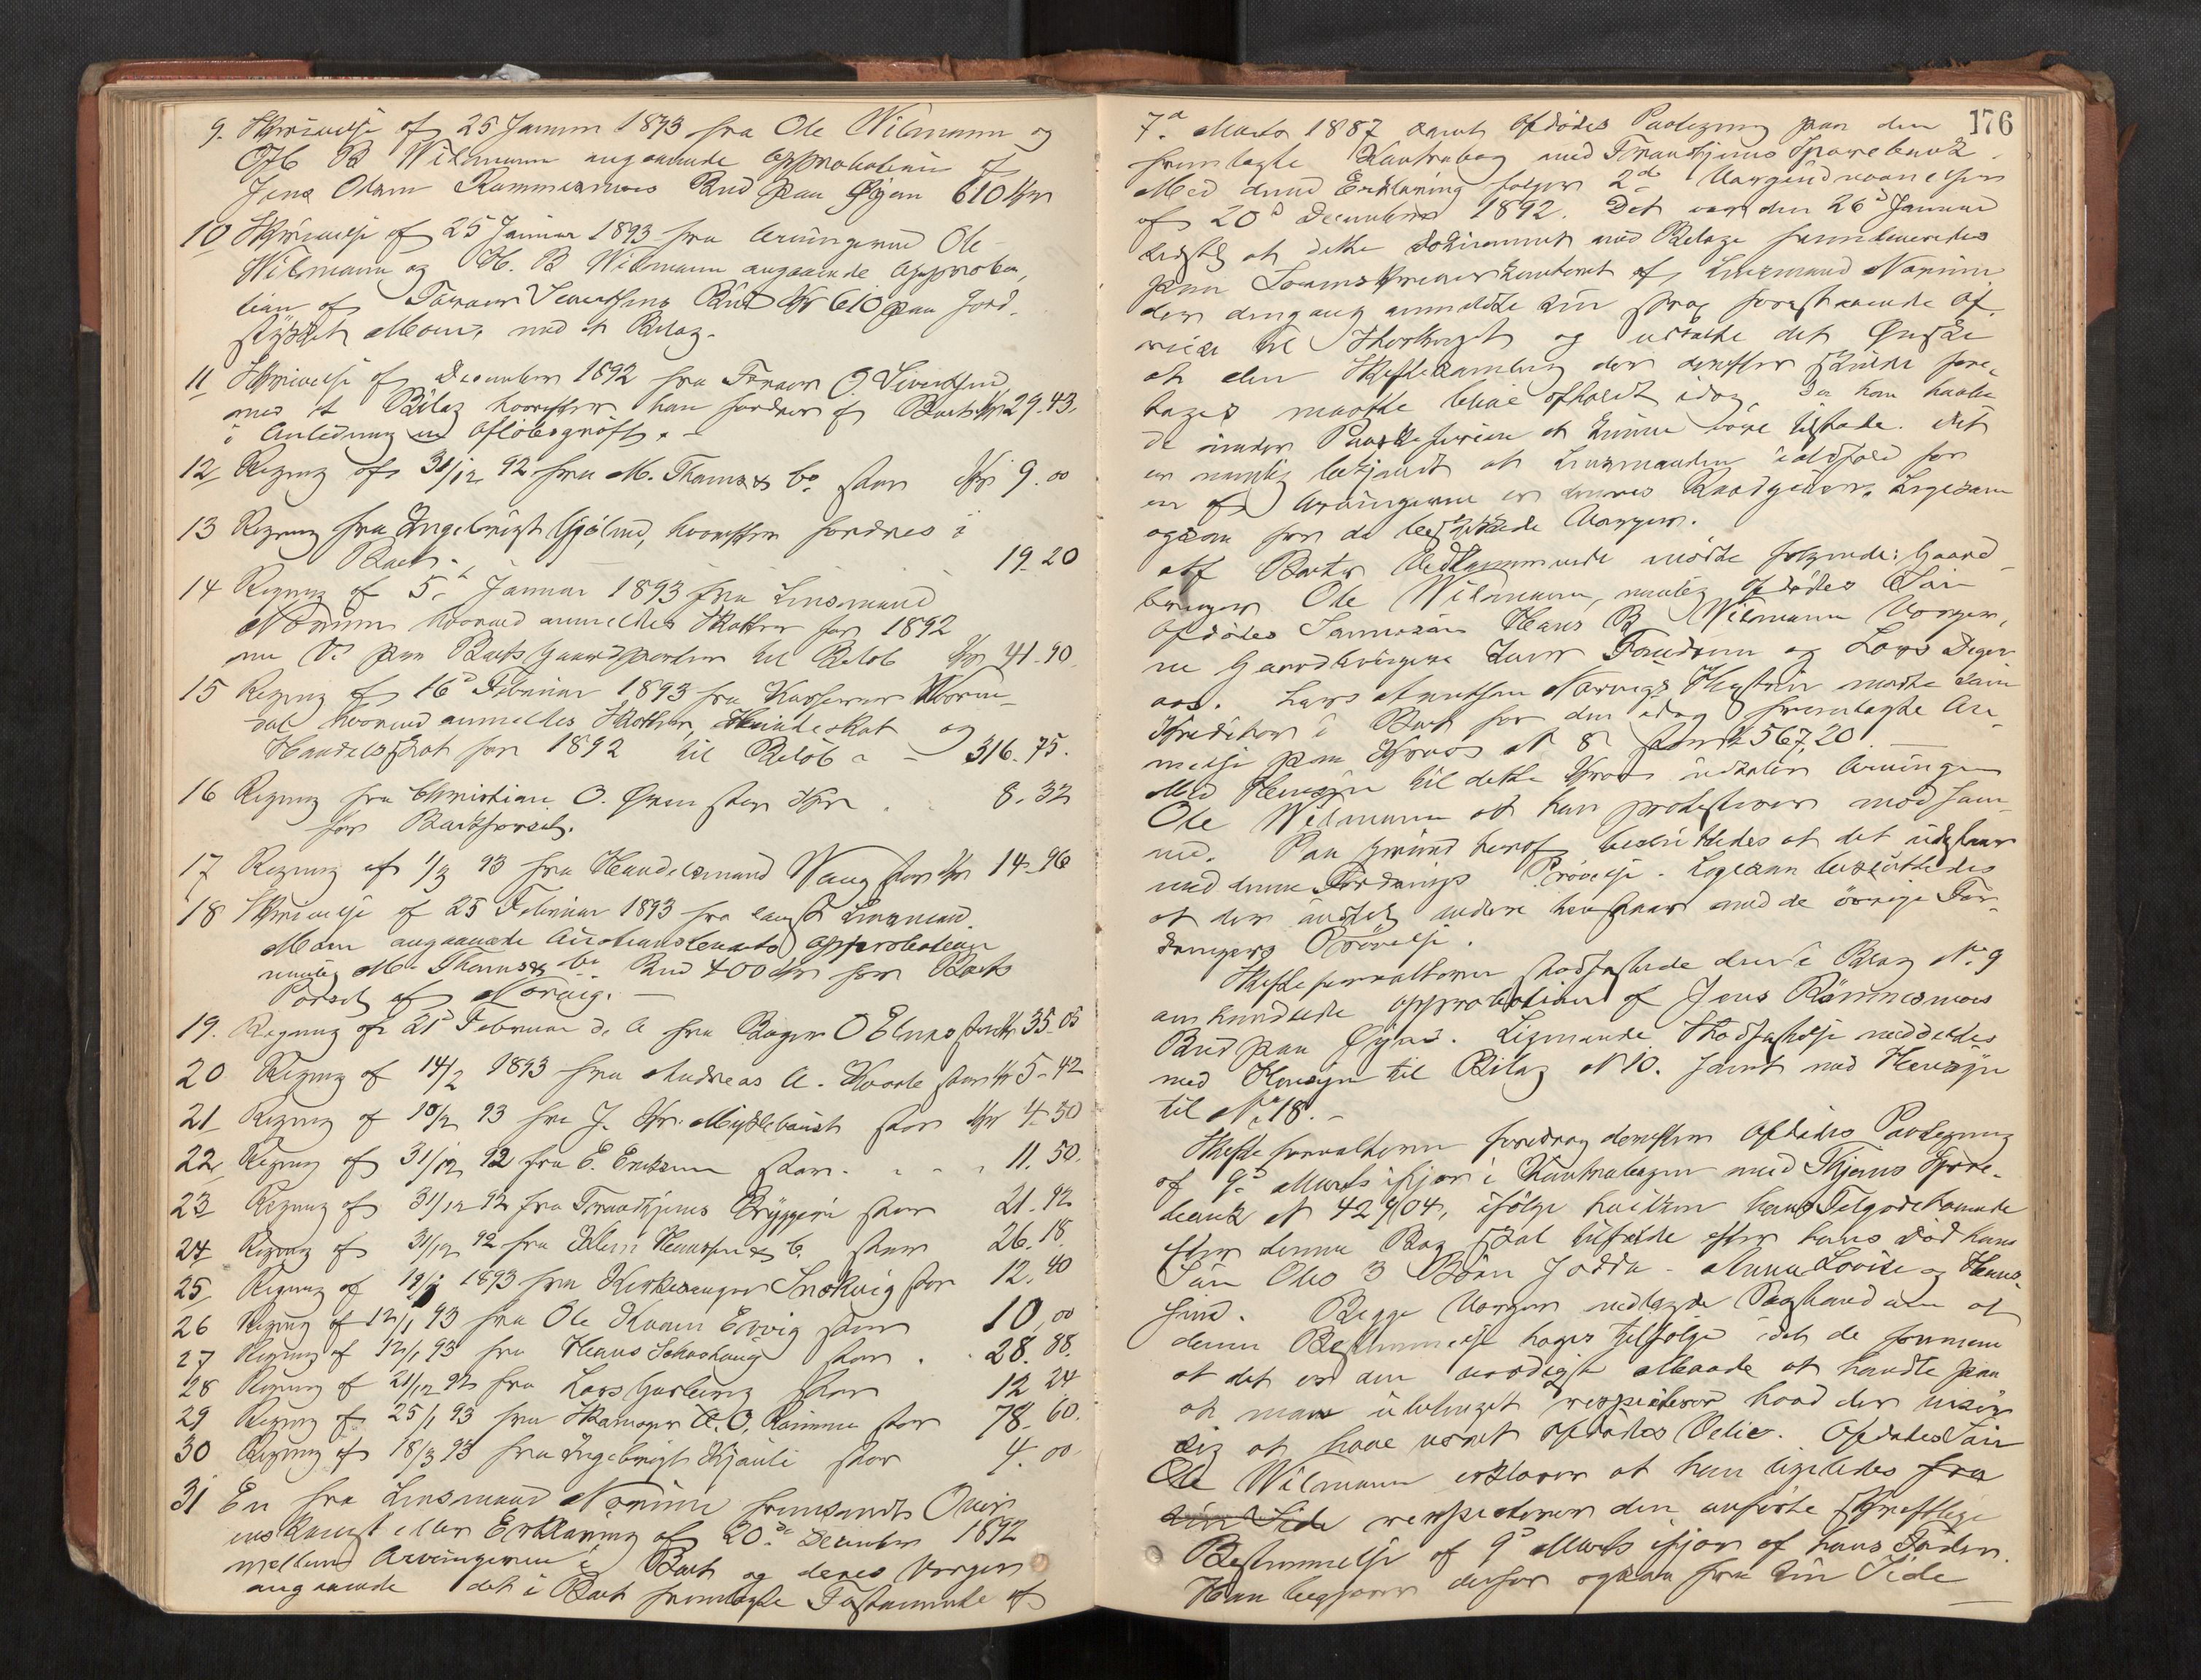 9. Skrivelse af 25 Januar 1893 fra Ole Wilmann og
H B Wilmann angaaende Approbation af
Jens Olsen Rammesmoes Bud paa Øyan 610 Kr
10 Skrivelse af 25 Januar 1893 fra Arvingerne Ole
Wilmann og H. B Wilmann angaaende Approba,
tion af Bud Kr 610 paa Jord,
stykket Moen, med et Bilag.
11 Skrivelse af December 1892 fra O. Sivertsen,
med et Bilag hvorefter han fordrer af Boet Kr 29.43.
i Anledning en Afløbsgrøft. -
12 Regning af 31/12 92 fra M. Thams & Co stor Kr 9.00
13 Regning fra Engebrigt Gjølme, hvorefter fordres i
Boet. 19.20
14 Regning af 5te Januar 1893 fra Lensmand
Norum hvorved anmeldes Skatter for 1892
paa Boets Gaardparter til Beløb Kr 41.90
15 Regning af 16de Februar 1893 fra Kasserer
hvorved anmeldes Skatter, og
Handelsskat for 1892 til Beløb - 316.75.
16 Regning fra Christian O. Øyen stor Kr 8.32
for
17 Regning af 1/3 93 fra Handelsmand Wang stor Kr 14.96
18 Skrivelse af 25 Februar 1893 fra Lensmand
Moen angaaende Auctionsbuds Approbation
nemlig M. Thams & Co Bud 400 Kr for Boets
Parcel af Norvig. -
19. Regning af 21de Februar d. A fra Bager O stor Kr 35.05
20 Regning af 14/2 1893 fra Andreas A. stor Kr 5.42
21 Regning af 10/2 93 fra J. Kr. Myklebust stor Kr 4.30
22 Regning af 31/12 92 fra E. Eriksen stor. 11.50.
23 Regning af 31/12 92 fra Trondhjems Bryggeri stor 21.92
24 Regning af 31/12 92 fra Klein Hansen & C. stor 26.18
25 Regning af 1893 fra Kirkesanger stor 12.40
26 Regning af 12/1 93 fra Ole stor 10,00
27 Regning af 12/1 93 fra Hans stor. 28.88.
28 Regning af 21/12 92 fra Lars stor 12 24
29 Regning af 25/1 93 fra Skomager A. O. stor 78.60.
30 Regning af 18/3 93 fra Ingebrigt stor 4.00
31 En fra Lensmand Norum fremsendt Over,
enskomst eller Erklæring af 20de December 1892
mellem Arvingerne i Boet og deres Verger
angaaende det i Boet fremlagte Testamente af
176
7de Marts 1887 samt Afdødes Paategning paa den
fremlagte Kontrabog med Trondhjems Sparebank.
Med denne Erklæring følger 2de
af 20de December 1892. Det var den 26de Januar
sidstl. at dette Dokument med Bilage fremleveredes
paa Sorenskriverkontoret af Lensmand Norum
der dengang anmeldte sin forestaaende Af,
reise til Storthinget og udtalte det Ønske
at den Skiftesamling der derefter skulde fore,
tages maatte blive afholdt idag, da han havde
de under Paaskeferien at kunne være tilstede. Det
er nemlig bekjendt at Lensmanden ialdfald for
en af Arvingerne er dennes Raadgiver, ligesom
ogsaa for de beskikkede Verger.
Af Boets Vedkommende mødte følgende: Gaard,
bruger Ole Wilmann, nemlig Afdødes Søn
Afdødes Sønnesøn Hans B Wilmann Verger,
ne Gaardbrugerne og Lars
aas. Lars Arntsen Norvigs mødte som
Kreditor i Boet for den idag fremlagte An,
melse paa Krav N 8 stor Kr 567,20. —
Med Hensyn til dette Krav udtaler Arvingen
Ole Wilmann at han protesterer mod sam,
me. Paa Grund heraf besluttedes at det udstaar
med denne Fordrings Prøvelse. Ligesaa besluttedes
at der indtil videre henstaar med de øvrige For,
dringers Prøvelse.
Skifteforvalteren stadfæstede den i Bilag No 9
omhandlede Approbation af Jens Rammesmoes
Bud paa Øyan. Lignende Stadfæstelse meddeltes
med Hensyn til Bilag N 10. samt med Hensyn
til No 18. -
Skifteforvalteren foredrog derefter Afdødes Paategning
af 9de Marts ifjor i Kontrabogen med Thjems Spare,
bank N 42904, ifølge hvilken hans Tilgodehavende
efter denne Bog skal tilfalde efter hans Død hans
Søn Oles 3 Børn - Anna Lovise og Hans.
Begge Verger nedlagde Paastand om at
denne Bestemmelse tages tilfølge idet de formene
at det er den værdigste Maade at handle paa
at man ubetinget respekterer hvad der viser
sig at have været Afdødes Vilie. Afdødes Søn
Ole Wilmann erklærer at han ligeledes fra
sin Side respekterer den anførte skriftlige
Bestemmelse af 9de Marts ifjor af hans Fader.
Han begjærer derfor ogsaa fra sin Side